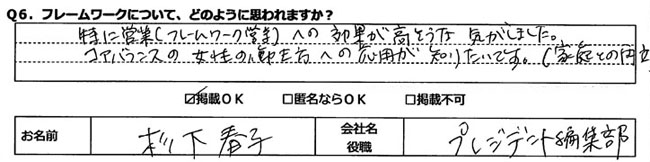 Q6．フレームワークについて、どのように思われますか？
特に営業(フレームワーク営業)への効果が高そうな気がしました。
コアバランスの女性の働き方への応用が知りたいです。(家庭との両立
☑掲載ＯＫ □匿名ならＯＫ □掲載不可
お名前 杉下春子 会社名 役職 プレジデント編集部